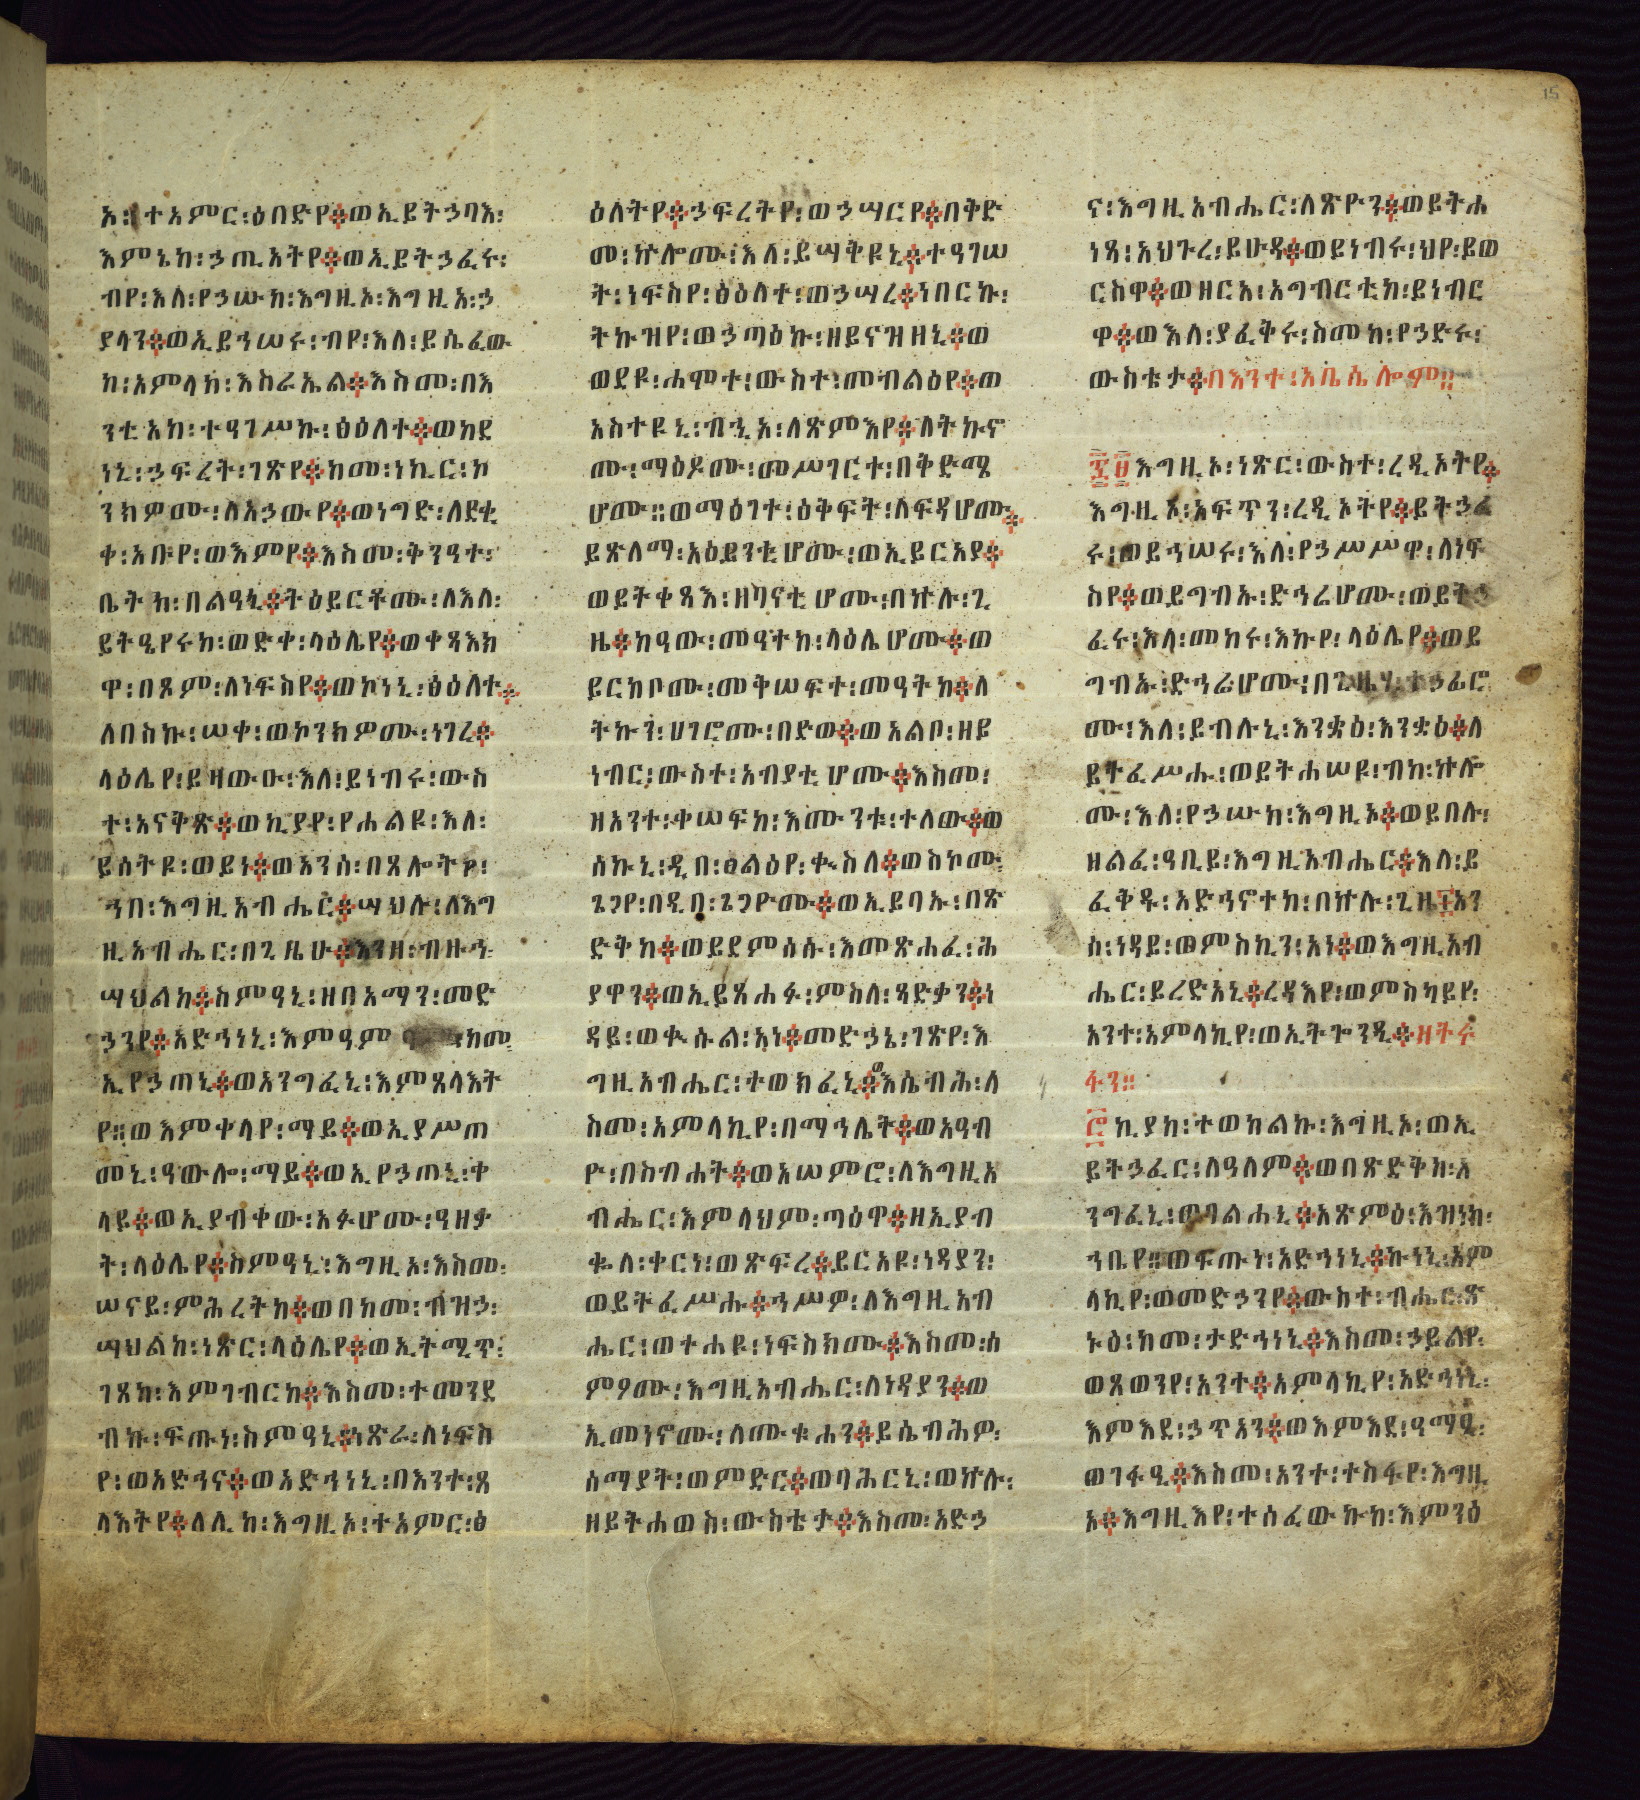 15
አ፡ተአምር፡ዕበድየ፨ወኢይትኃባእ፡
እምኔከ፡ኃጢአትየ፨ወኢይትኃፈሩ፡
ብየ፡እለ፡የኃሡከ፡እግዚኦ፡እግዚአ፡ኃ
ያላን፨ወኢይኀሠሩ፡ብየ፡እለ፡ይሴፈው
ከ፡አምላከ፡እስራኤል፨እስመ፡በእ
ንቲአከ፡ተዓገሥኩ፡ፅዕለተ፨ወከደ
ነኒ፡ኃፍረት፡ገጽየ፨ከመ፡ነኪር፡ኮ
ንክዎሙ፡ለአኃውየ፨ወነግድ፡ለደቂ
ቀ፡አቡየ፡ወእምየ፨እስመ፡ቅንዓተ፡
ቤትከ፡በልዓኒ፨ትዕይርቶሙ፡ለእለ፡
ይትዒየሩከ፡ወድቀ፡ላዕሌየ፨ወቀጻእክ
ዋ፡በጾም፡ለነፍስየ፨ወኮነኒ፡ፅዕለተ፨
ለበስኩ፡ሠቀ፡ወኮንክዎሙ፡ነገረ፨
ላዕሌየ፡ይዛውዑ፡እለ፡ይነብሩ፡ውስ
ተ፡አናቅጽ፨ወኪያየ፡የሐልዩ፡እለ፡
ይሰትዩ፡ወይነ፨ወአንሰ፡በጸሎትየ፡
ኀበ፡እግዚአብሔር፨ሣህሉ፡ለእግ
ዚአብሔር፡በጊዜሁ፨እንዘ፡ብዙኅ
ሣህልከ፨ስምዓኒ፡ዘበአማን፡መድ
ኃንየ፨አድኀነኒ፡እምዓም ከመ
ኢየኃጠኒ፨ወአንግፈኒ፡እምጸላእት
የ፡፡ወእምቀላየ፡ማይ፨ወኢያሥጠ
መኒ፡ዓውሎ፡ማይ፨ወኢየኃጠኒ፡ቀ
ላይ፨ወኢያብቀው፡አፉሆሙ፡ዓዘቃ
ት፡ላዕሌየ፨ስምዓኒ፡እግዚአ፡እስመ፡
ሠናይ፡ምሕረትከ፨ወበከመ፡ብዝኃ፡
ሣህልከ፡ነጽር፡ላዕሌየ፨ወኢትሚጥ፡
ገጸከ፡እምገብርከ፨እስመ፡ተመንደ
ብኩ፡ፍጡነ፡ስምዓኒ፨ነጽራ፡ለነፍስ
የ፡ወአድኀና፨ወአድኀነኒ፡በእንተ፡ጸ
ላእትየ፨ለሊከ፡እግዚአ፡ተአምር፡ፅ
ዕለትየ፨ኃፍረትየ፡ወኃሣርየ፨በቅድ
መ፡ኵሎሙ፡እለ፡ይሣቅዩኒ፨ተዓገሠ
ት፡ነፍስየ፡ፅዕለተ፡ወኃሣረ፨ነበርኩ፡
ትኩዝየ፡ወኃጣዕኩ፡ዘይናዝዘኒ፨ወ
ወደዩ፡ሐሞተ፡ውስተ፡መብልዕየ፨ወ
አስተዩኒ፡ብኂአ፡ለጽምእየ፨ለትኩኖ
ሙ፡ማዕዶሙ፡መሥገርተ፡በቅድሜ
ሆሙ፡፡ወማዕገተ፡ዕቅፍት፡ለፍዳሆሙ፨
ይጽለማ፡አዕይንቲሆሙ፡ወኢይርአያ፨
ወይትቀጻእ፡ዘባናቲሆሙ፡በኵሉ፡ጊ
ዜ፨ከዓው፡መዓተከ፡ላዕሌሆሙ፨ወ
ይርከቦሙ፡መቅሠፍተ፡መዓትከ፨ለ
ትኩን፡ሀገሮሙ፡በድወ፨ወአልቦ፡ዘይ
ነብር፡ውስተ፡አብያቲሆሙ፨እስመ፡
ዘአንተ፡ቀሠፍከ፡እሙንቱ፡ተለው፨ወ
ሰኩኒ፡ዲበ፡ፀልዕየ፡ቊስለ፨ወስኮሙ፡
ጌጋየ፡በዲበ፡ጌጋዮሙ፨ወኢይባኡ፡በጽ
ድቅከ፨ወይደምሰሱ፡እመጽሐፈ፡ሕ
ያዋን፨ወኢይጸሐፉ፡ምስለ፡ጻድቃን፨ነ
ዳይ፡ወቊሱል፡አነ፨መድኃኔ፡ገጽየ፡እ
ግዚአብሔር፡ተወክፈኒ፨እሴብሕ፡ለ
ስመ፡አምላኪየ፡በማኅሌት፨ወአዓብ
ዮ፡በስብሐት፨ወአሠምሮ፡ለእግዚአ
ብሔር፡እምላህም፡ጣዕዋ፨ዘኢያብ
ቈለ፡ቀርነ፡ወጽፍረ፨ይርአዩ፡ነዳያን፡
ወይትፈሥሑ፨ኀሥዎ፡ለእግዚአብ
ሔር፡ወተሐዩ፡ነፍስክሙ፨እስመ፡ሰ
ምዖሙ፡እግዚአብሔር፡ለነዳያን፨ወ
ኢመነኖሙ፡ለሙቁሐን፨ይሴብሕዎ፡
ሰማያት፡ወምድር፨ወባሕርኒ፡ወኵሉ፡
ዘይትሐወስ፡ውስቴታ፨እስመ፡አድኃ
ና፡እግዚአብሔር፡ለጽዮን፨ወይትሐ
ነጻ፡አህጉረ፡ይሁዳ፨ወይነብሩ፡ህየ፡ይወ
ርስዋ፨ወዘርአ፡አግብርቲከ፡ይነብር
ዋ፨ወእለ፡ያፈቅሩ፡ስመከ፡የኃድሩ፡
ውስቴታ፨በእንተ፡አቤሴሎም፡፡
፷፱እግዚኦ፡ነጽር፡ውስተ፡ረዲኦትየ፨
እግዚኦ፡አፍጥን፡ረዲኦትየ፨ይትኃፈ
ሩ፡ወይኀሠሩ፡እለ፡የኃሥሥዋ፡ለነፍ
ስየ፨ወይግብኡ፡ድኅሬሆሙ፡ወይትኃ
ፈሩ፡እለ፡መከሩ፡እኩየ፡ላዕሌየ፨ወይ
ግብኡ፡ድኅሬሆሙ፡በጊዜሃ፡ተኃፊሮ
ሙ፡እለ፡ይብሉኒ፡እንቋዕ፡እንቋዕ፨ለ
ይትፈሥሑ፡ወይትሐሠዩ፡ብከ፡ኵሎ
ሙ፡እለ፡የኃሡከ፡እግዚኦ፨ወይበሉ፡
ዘልፈ፡ዓቢይ፡እግዚአብሔር፨እለ፡ይ
ፈቅዱ፡አድኅኖተከ፡በኵሉ፡ጊዜ፤አን
ሰ፡ነዳይ፡ወምስኪን፡አነ፨ወእግዚአብ
ሔር፡ይረድአኒ፨ረዳእየ፡ወምስካይየ፡
አንተ፡አምላኪየ፡ወኢትጐንዲ፨ዘትሩ
ፋን፡፡
፸ኪያከ፡ተወከልኩ፡እግዚኦ፡ወኢ
ይትኃፈር፡ለዓለም፨ወበጽድቅከ፡አ
ንግፈኒ፡ወባልሐኒ፨አጽምዕ፡እዝነከ፡
ኀቤየ፡፡ወፍጡነ፡አድኅነኒ፨ኩነኒ፡አም
ላኪየ፡ወመድኃንየ፨ውስተ፡ብሔር፡ጽ
ኑዕ፡ከመ፡ታድኅነኒ፨እስመ፡ኃይልየ፡
ወጸወንየ፡አንተ፨አምላኪየ፡አድኅነኒ፡
እምእደ፡ኃጥአን፨ወእምእደ፡ዓማፂ፡
ወገፋዒ፨እስመ፡አንተ፡ተስፋየ፡እግዚ
አ፨እግዚእየ፡ተሰፈውኩከ፡እምንዕ